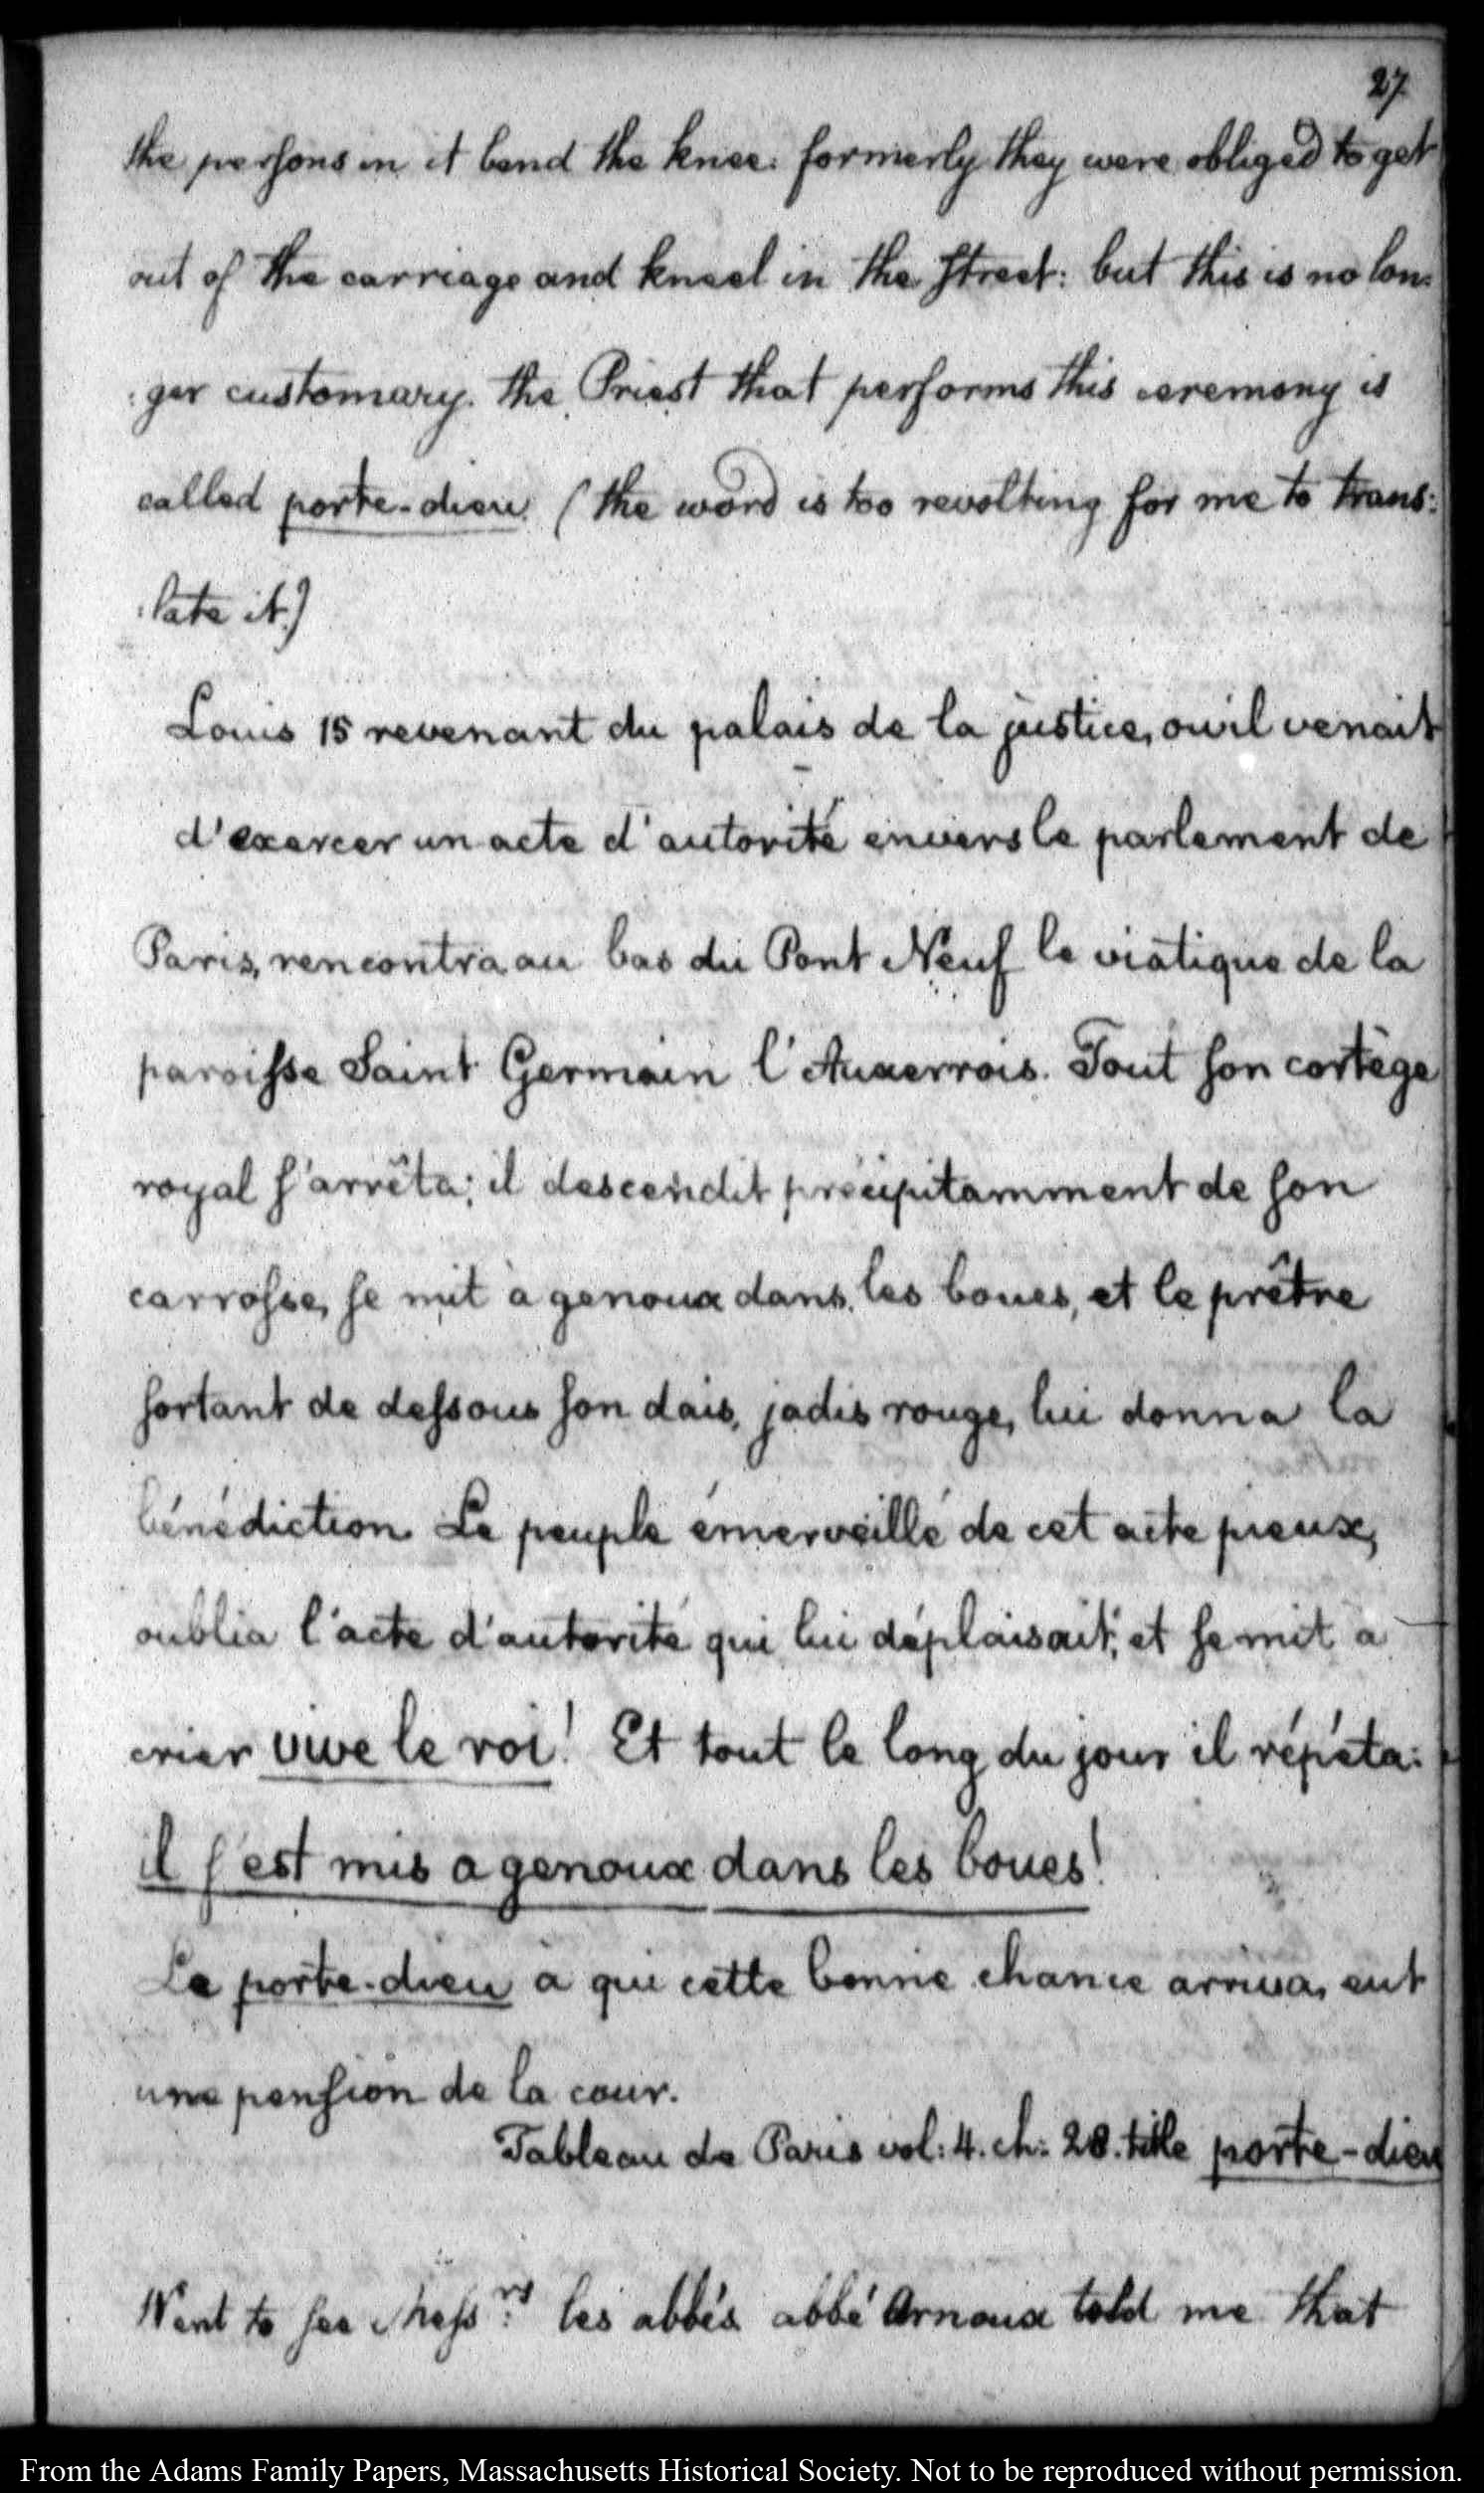 27
the persons in it bend the knee: formerly they were obliged to get
out of the carriage and kneel in the street: but this is no lon:
:ger customary. the Priest that performs this ceremony is
called porte-dieu. (the word is too revolting for me to trans:
:late it.)
Louis 15 revenant du palais de la justice, ou il venait
d'exercer un acte d'autorité envers le parlement de
Paris, rencontra au bas du Pont Neuf le viatique de la
paroisse Saint Germain l'Auxerrois. Tout son cortège
royal s'arrêta; il descendit précipitamment de son
carrosse, se mit à genoux dans les boues, et le prêtre
sortant de dessous son dais, jadis rouge, lui donna la
bénédiction. Le peuple émerveillé de cet acte pieux,
oublia l'acte d'autorité qui lui déplaisait; et se mit a
crier vive le roi! Et tout le long du jour il répéta:
il s'est mis a genoux dans les boues!
Le porte-dieu à qui cette bonne chance arriva, eut
une pension de la cour.
Tableau de Paris vol: 4. ch: 28. title porte-dieu
Went to see Mess:rs les abbés. abbé Arnoux told me that
From the Adams Family Papers, Massachusetts Historical Society. Not to be reproduced without permission.